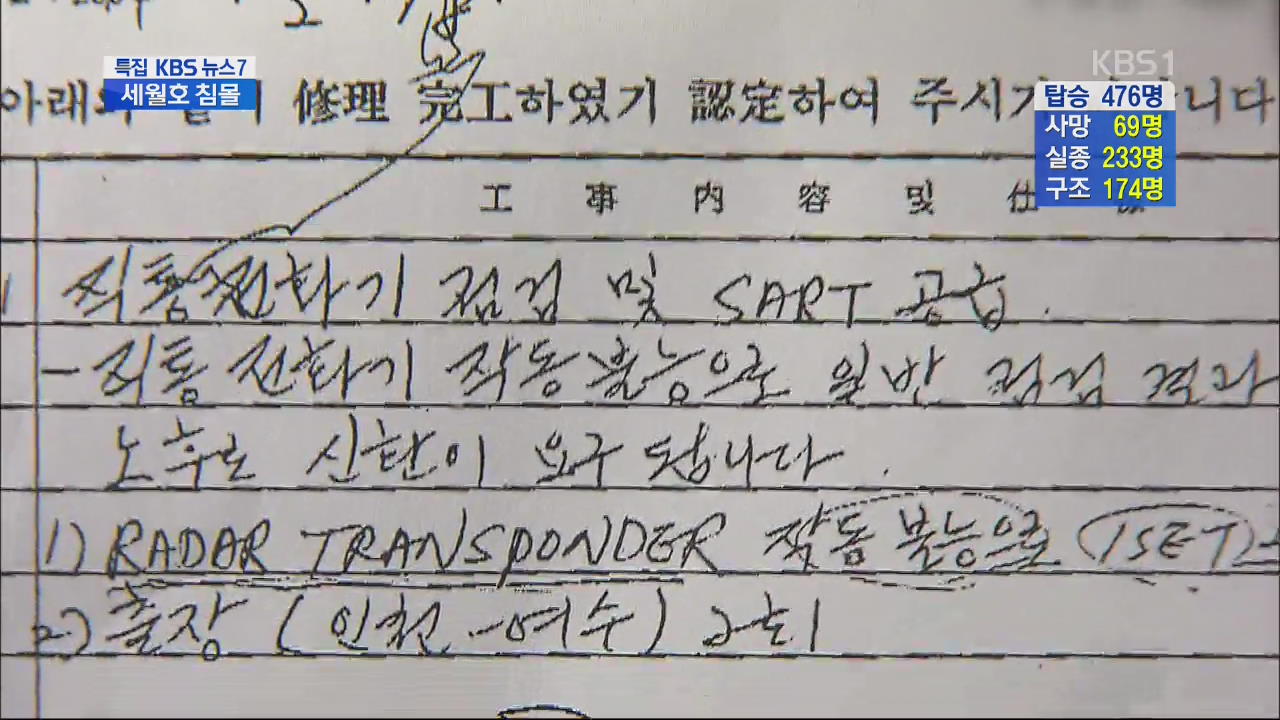 특집 KBS 뉴스7
세월호 침몰
KBS1
탑승 476명
사망 69명
실종 233명
구조 174명
아래와 같이 修理 完工하였기 認定하여 주시기 니다
工事內容 및 仕
직통전화기 점검 및 SART 공급.
- 직통 전화기 작동불능으로 일반 점검 결과
노후로 신환이 요구 됩니다.
1) RADAR TRANSPONDER 작동 불능으로 (1SET)
2) 출장 (인천-여수) 2회